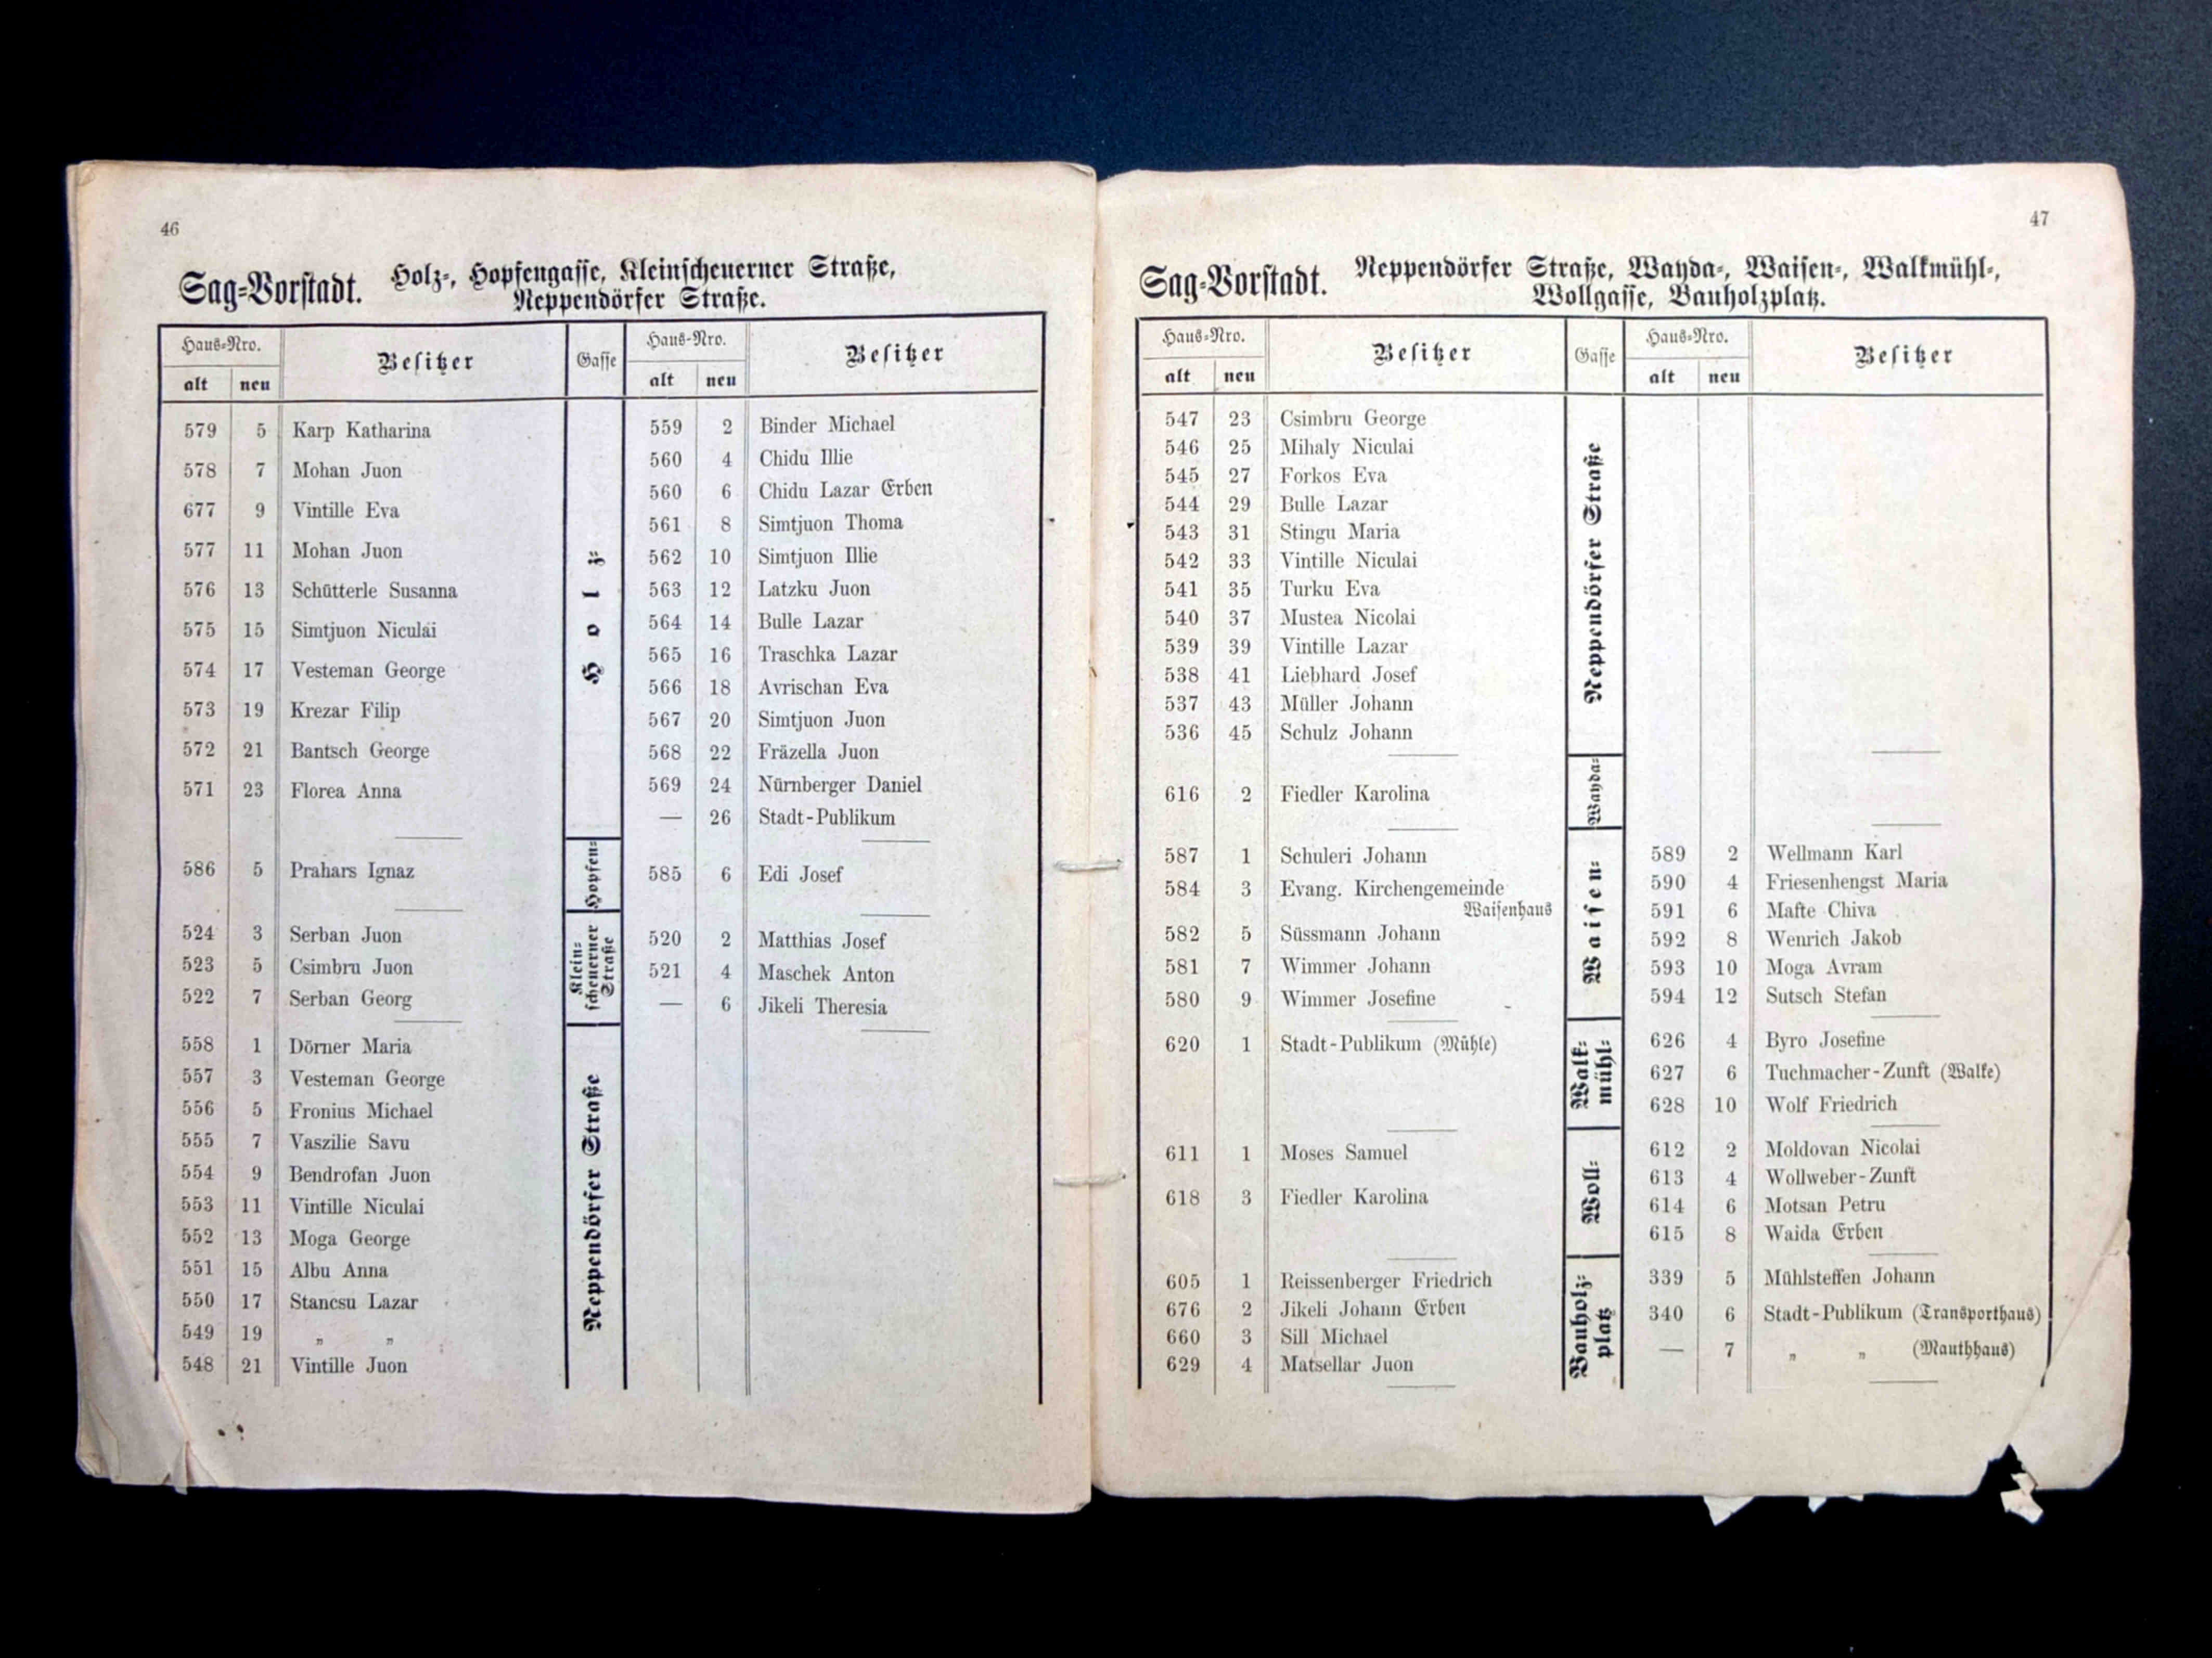 46
Sag-Vorstadt. Holz-, Hopfengasse, Kleinscheuerner Straße,
Neppendörfer Straße.
Haus-Nro. Besitzer
alt neu
579 5 Karp Katharina
578 7 Mohan Juon
677 9 Vintille Eva
577 11 Mohan Juon
576 13 Schütterle Susanna
575 15 Simtjuon Niculai
574 17 Vesteman George
573 19 Krezar Filip
572 21 Bantsch George
571 23 Florea Anna
586 5 Prahars Ignaz
524 3 Serban Juon
523 5 Csimbru Juon
522 7 Serban Georg
558 1 Dörner Maria
557 3 Vesteman George
556 5 Fronius Michael
555 7 Vaszilie Savu
554 9 Bendrofan Juon
553 11 Vintille Niculai
552 13 Moga George
551 15 Albu Anna
550 17 Stancsu Lazar
549 19 „ „
548 21 Vintille Juon
Gasse
Holz-
Hopfen-
Klein-
scheuerner
Straße
Neppendörfer Straße
Haus-Nro. Besitzer
alt neu
559 2 Binder Michael
560 4 Chidu Illie
560 6 Chidu Lazar Erben
561 8 Simtjuon Thoma
562 10 Simtjuon Illie
563 12 Latzku Juon
564 14 Bulle Lazar
565 16 Traschka Lazar
566 18 Avrischan Eva
567 20 Simtjuon Juon
568 22 Fräzella Juon
569 24 Nürnberger Daniel
— 26 Stadt-Publikum
585 6 Edi Josef
520 2 Matthias Josef
521 4 Maschek Anton
— 6 Jikeli Theresia
47
Sag-Vorstadt. Neppendörfer Straße, Wayda-, Waisen-, Walkmühl-,
Wollgasse, Bauholzplatz.
Haus-Nro. Besitzer
alt neu
547 23 Csimbru George
546 25 Mihaly Niculai
545 27 Forkos Eva
544 29 Bulle Lazar
543 31 Stingu Maria
542 33 Vintille Niculai
541 35 Turku Eva
540 37 Mustea Nicolai
539 39 Vintille Lazar
538 41 Liebhard Josef
537 43 Müller Johann
536 45 Schulz Johann
616 2 Fiedler Karolina
587 1 Schuleri Johann
584 3 Evang. Kirchengemeinde
Waisenhaus
582 5 Süssmann Johann
581 7 Wimmer Johann
580 9 Wimmer Josefine
620 1 Stadt-Publikum (Mühle)
611 1 Moses Samuel
618 3 Fiedler Karolina
605 1 Reissenberger Friedrich
676 2 Jikeli Johann Erben
660 3 Sill Michael
629 4 Matsellar Juon
Gasse
Neppendörfer Straße
Wayda-
Waisen-
Walk-
mühl-
Woll-
Bauholz-
platz
Haus-Nro. Besitzer
alt neu
589 2 Wellmann Karl
590 4 Friesenhengst Maria
591 6 Mafte Chiva
592 8 Wenrich Jakob
593 10 Moga Avram
594 12 Sutsch Stefan
626 4 Byro Josefine
627 6 Tuchmacher-Zunft (Walke)
628 10 Wolf Friedrich
612 2 Moldovan Nicolai
613 4 Wollweber-Zunft
614 6 Motsan Petru
615 8 Waida Erben
339 5 Mühlsteffen Johann
340 6 Stadt-Publikum (Transporthaus)
— 7 „ „ (Mauthhaus)